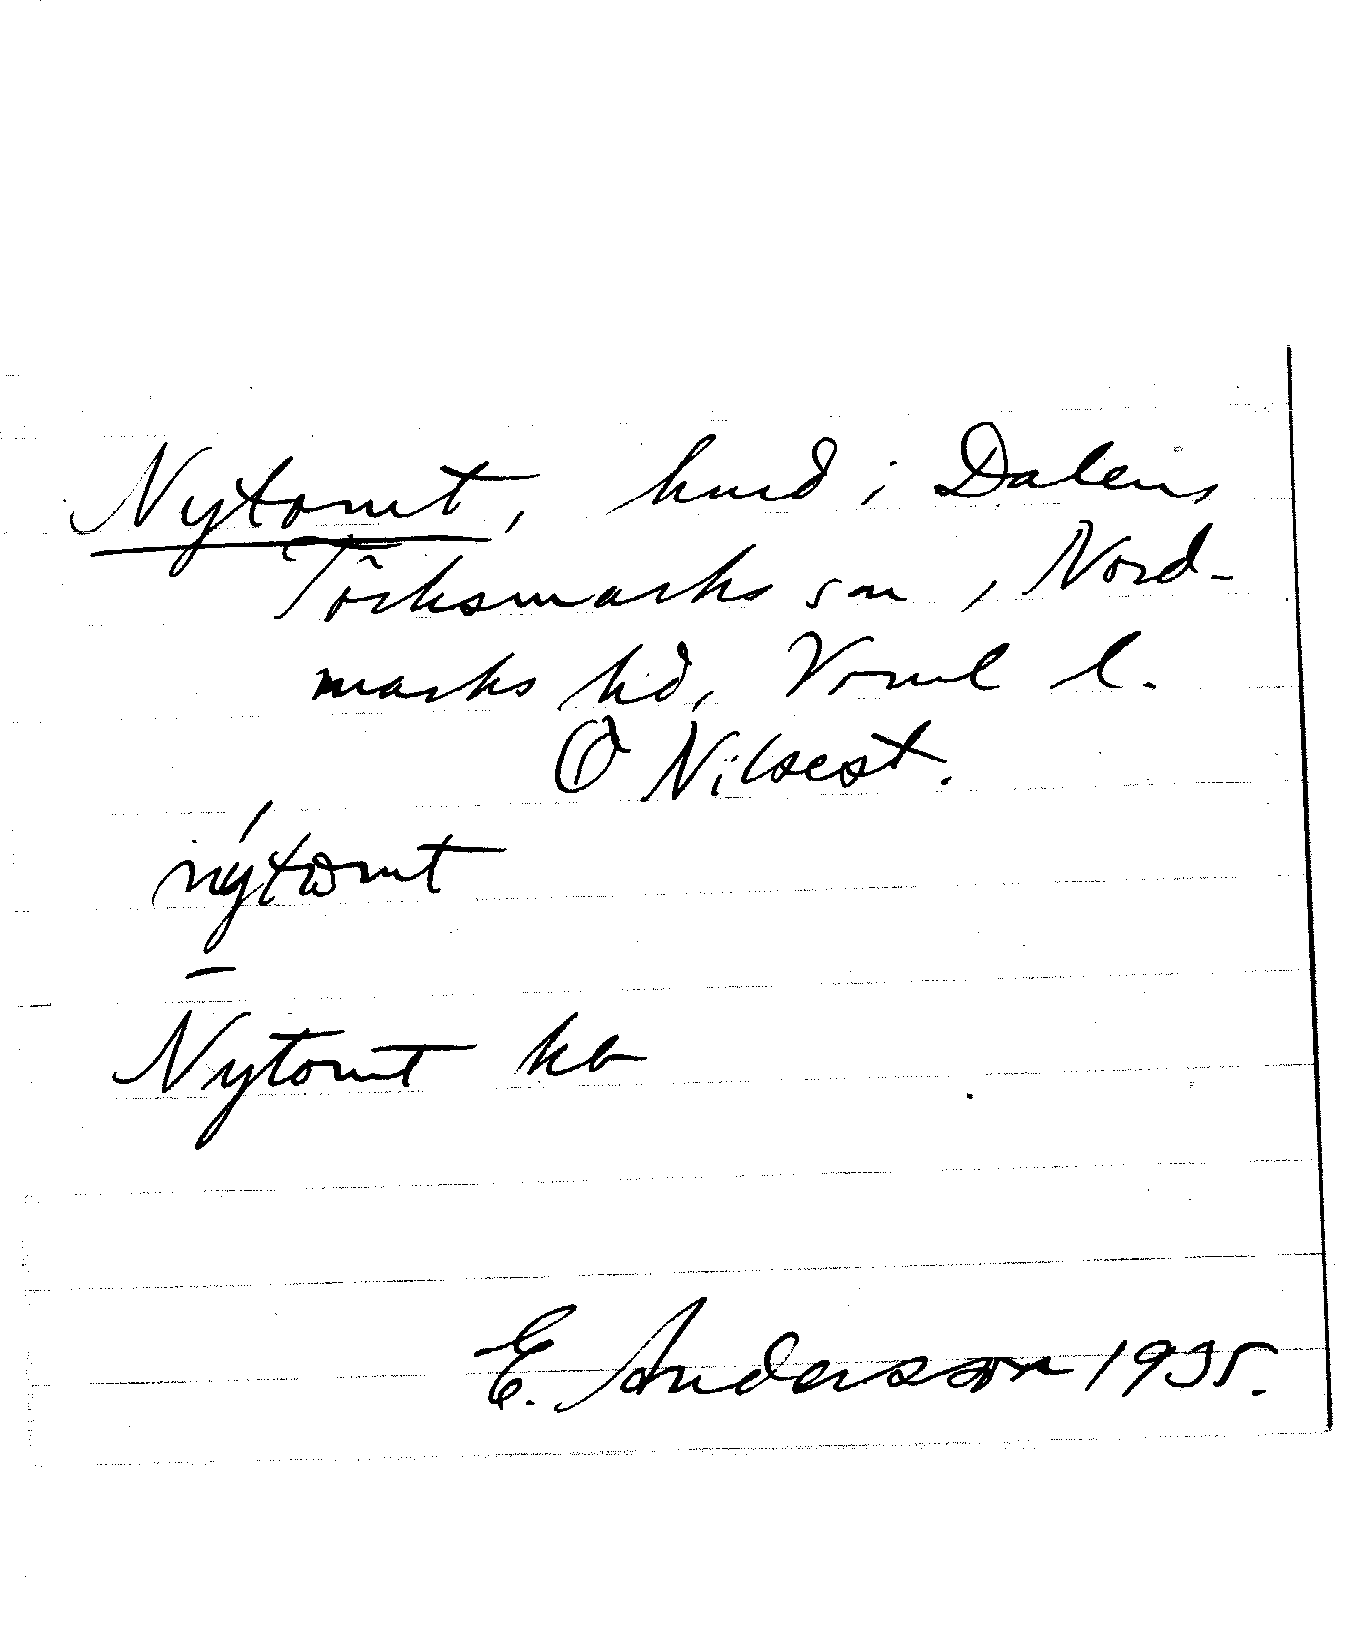 Nytomt, hmd i Dalens
Töcksmarks sn, Nord-
marks hd, Värml l.
O Nilsest.
nýtωmt
Nytomt kb
E. Andersson 1935.